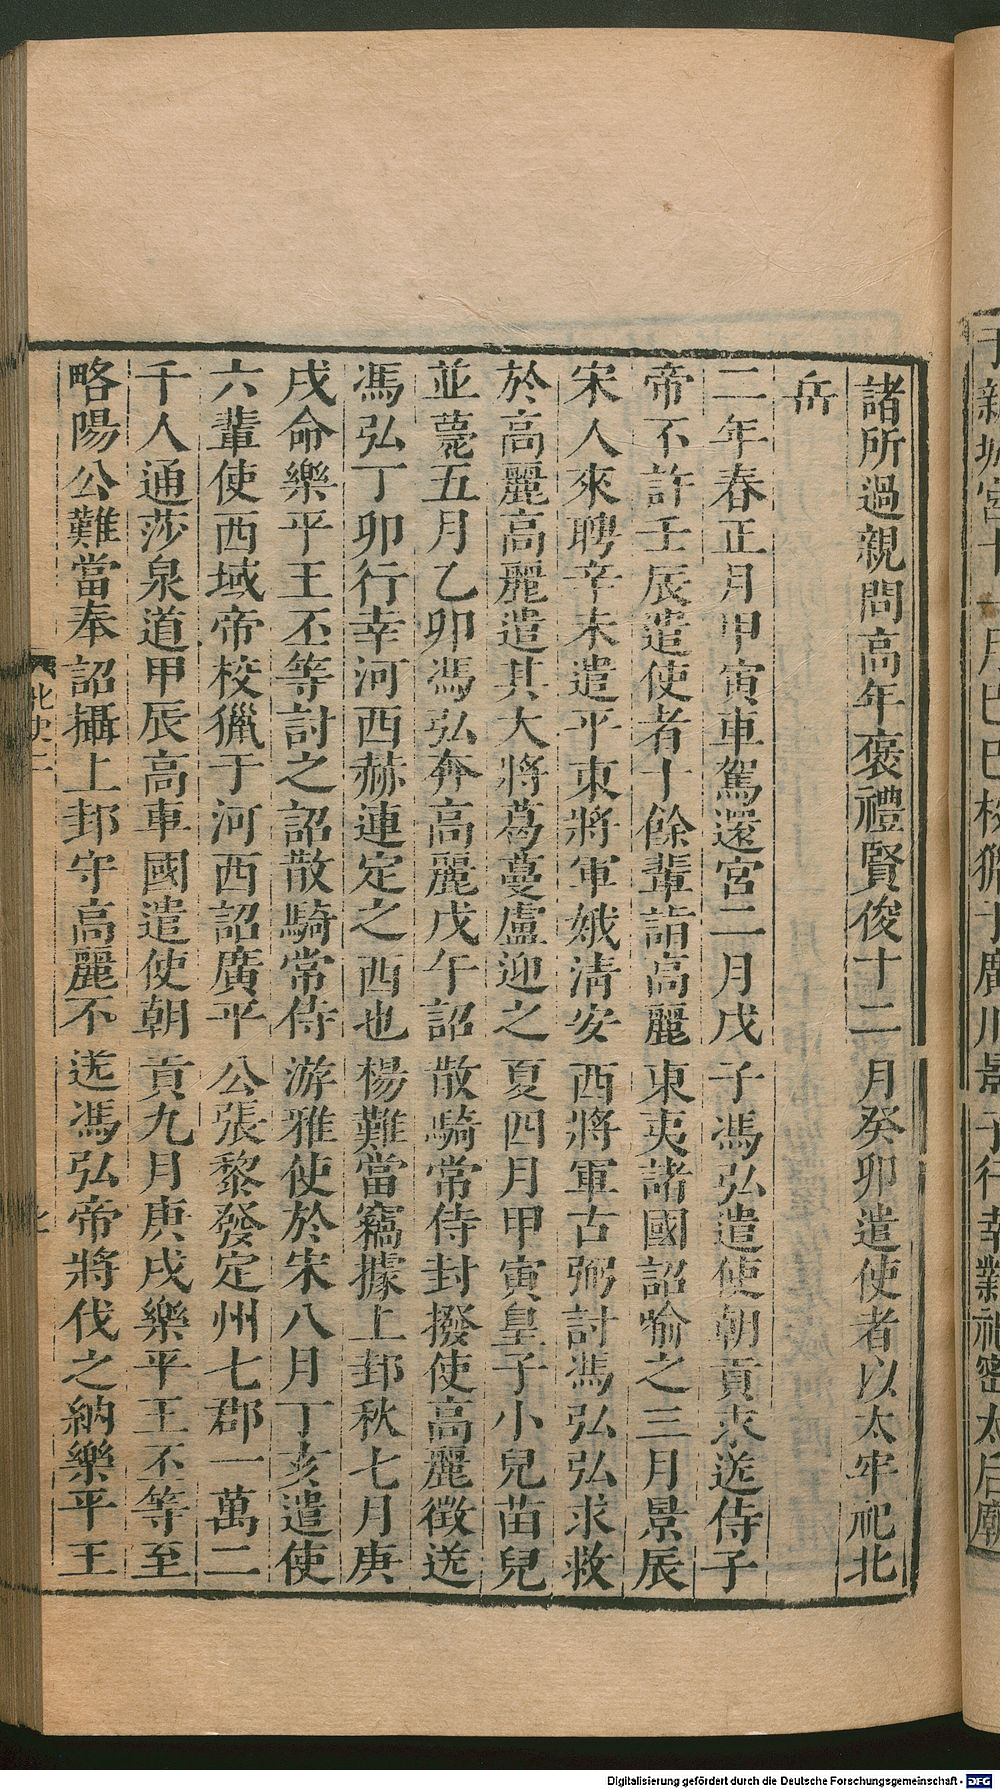 諸所過親問高年褒禮賢俊十二月癸卯遣使者以太牢祀北
岳
二年春正月甲寅車駕還宮二月戊子馮弘遣使朝貢求送侍子
帝不許壬辰遣使者十餘輩詣高麗東夷諸國詔喻之三月景辰
宋人來聘辛未遣平東將軍娥清安西將軍古弼討馮弘弘求救
於高麗高麗遣其大將葛蔓盧迎之夏四月甲寅皇子小兒苗兒
並薨五月乙卯馮弘奔高麗戊午詔散騎常侍封撥使高麗徵送
馮弘丁卯行幸河西赫連定之西也楊難當竊據上邽秋七月庚
戌命樂平王丕等討之詔散騎常侍游雅使於宋八月丁亥遣使
六輩使西域帝校獵于河西詔廣平公張黎發定州七郡一萬二
千人通莎泉道甲辰高車國遣使朝貢九月庚戌樂平王丕等至
略陽公難當奉詔攝上邽守高麗不送馮弘帝將伐之納樂平王
北史二
Digitalisierung gefördert durch die Deutsche Forschungsgemeinschaft - DFG